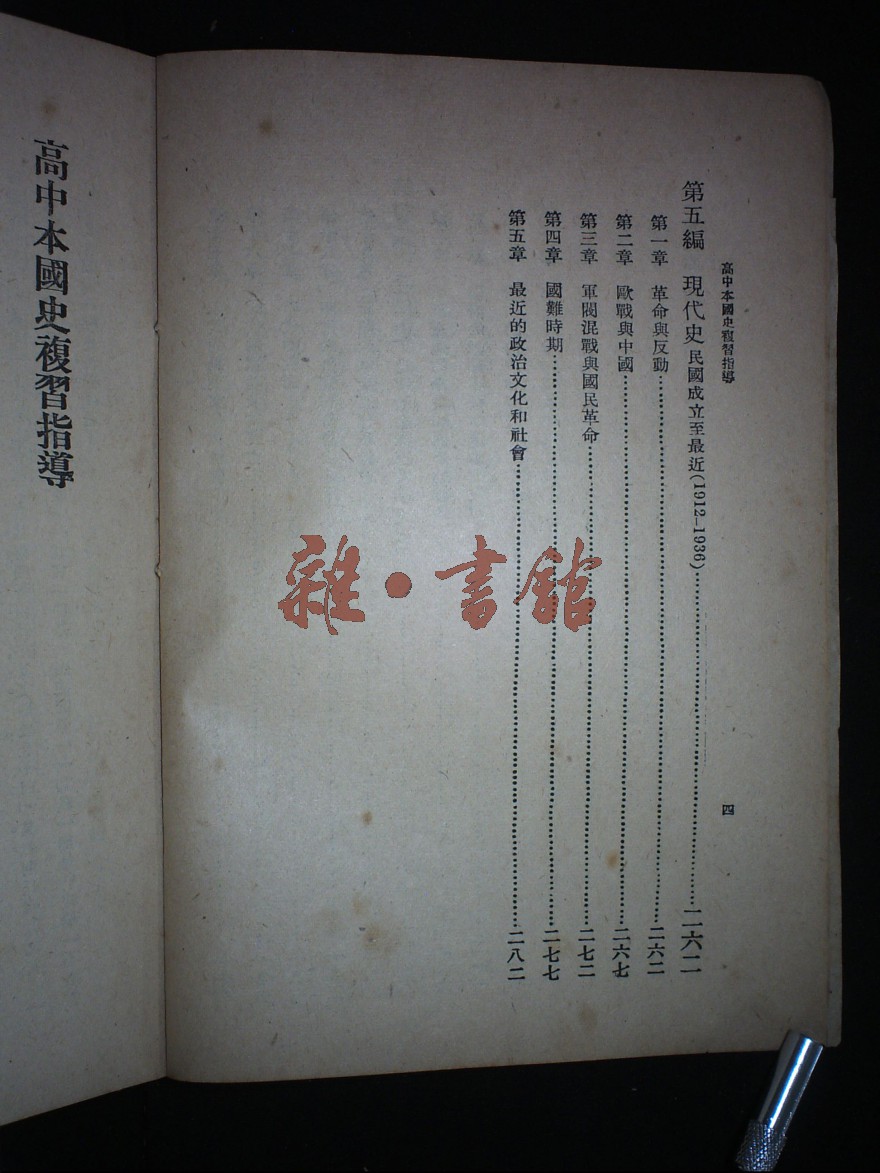 高中本國史複習指導
四
第五編 現代史 民國成立至最近(1912–1936)……二六二
第一章 革命與反動……二六二
第二章 歐戰與中國……二六七
第三章 軍閥混戰與國民革命……二七二
第四章 國難時期……二七七
第五章 最近的政治文化和社會……二八二
高中本國史複習指導
雜·書館